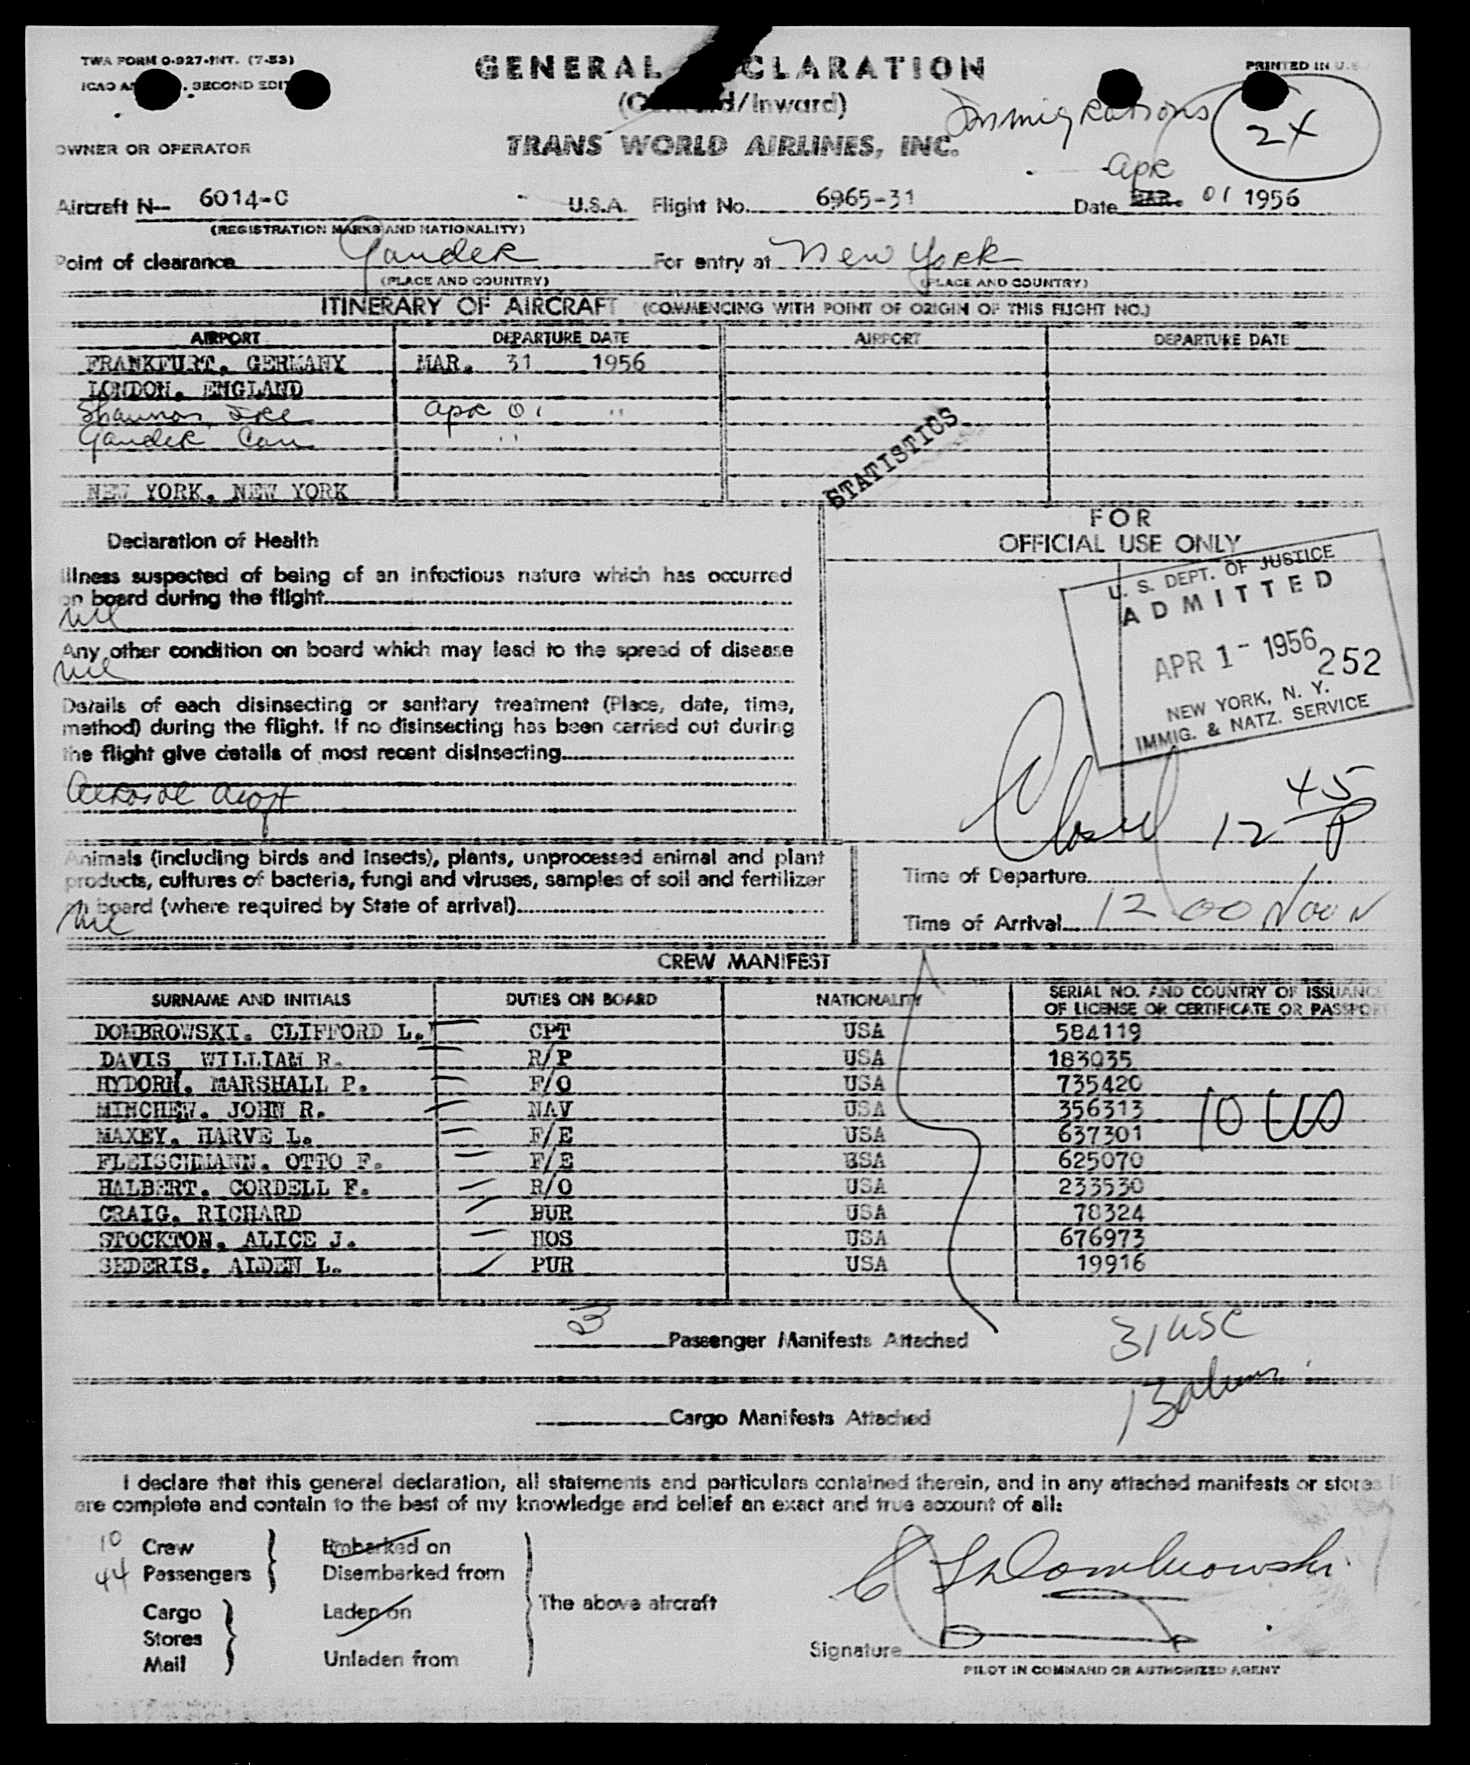 TWA FORM O-927-INT. (7-53)
PRINTED IN U.S.
ICAO SECOND EDI
GENERAL CLARATION
(Inward)
TRANS WORLD AIRLINES, INC.
Immigrations
24
OWNER OR OPERATOR
Apr
Aircraft N- 6014-C U.S.A. Flight No. 6965-31 Date MAR. 01 1956
(REGISTRATION MARKS AND NATIONALITY)
Point of clearance Gander For entry at New York
(PLACE AND COUNTRY) (PLACE AND COUNTRY)
ITINERARY OF AIRCRAFT (COMMENCING WITH POINT OF ORIGIN OF THIS FLIGHT NO.)
AIRPORT DEPARTURE DATE AIRPORT DEPARTURE DATE
FRANKFURT, GERMANY MAR. 31 1956
LONDON, ENGLAND
Shannon, Ire Apr 01 "
Gander Can "
NEW YORK, NEW YORK
STATISTICS
Declaration of Health
FOR
OFFICIAL USE ONLY
Illness suspected of being of an infectious nature which has occurred
on board during the flight
Nil
Any other condition on board which may lead to the spread of disease
Nil
Details of each disinsecting or sanitary treatment (Place, date, time,
method) during the flight. If no disinsecting has been carried out during
the flight give details of most recent disinsecting
Aerosol
U. S. DEPT. OF JUSTICE
ADMITTED
APR 1 - 1956
252
NEW YORK, N. Y.
IMMIG. & NATZ. SERVICE
Closed 12 45 P
Animals (including birds and insects), plants, unprocessed animal and plant
products, cultures of bacteria, fungi and viruses, samples of soil and fertilizer
on board (where required by State of arrival)
Nil
Time of Departure
Time of Arrival 12 00 Noon
CREW MANIFEST
SURNAME AND INITIALS DUTIES ON BOARD NATIONALITY SERIAL NO. AND COUNTRY OF ISSUANCE
OF LICENSE OR CERTIFICATE OR PASSPORT
DOMBROWSKI, CLIFFORD L. CPT USA 584119
DAVIS, WILLIAM R. R/P USA 183035
HYDORN, MARSHALL P. F/O USA 735420
MINCHEW, JOHN R. NAV USA 356313
MAXEY, HARVE L. F/E USA 637301
FLEISCHMANN, OTTO F. F/E BSA 625070
HALBERT, CORDELL F. R/O USA 233530
CRAIG, RICHARD BUR USA 78324
STOCKTON, ALICE J. HOS USA 676973
SEDERIS, ALDEN L. PUR USA 19916
10
3 Passenger Manifests Attached
31 USC
Cargo Manifests Attached
13 aliens
I declare that this general declaration, all statements and particulars contained therein, and in any attached manifests or stores
are complete and contain to the best of my knowledge and belief an exact and true account of all:
10 Crew Embarked on
44 Passengers Disembarked from
The above aircraft
Cargo Laden on
Stores
Mail Unladen from
C L Dombrowski
Signature
PILOT IN COMMAND OR AUTHORIZED AGENT